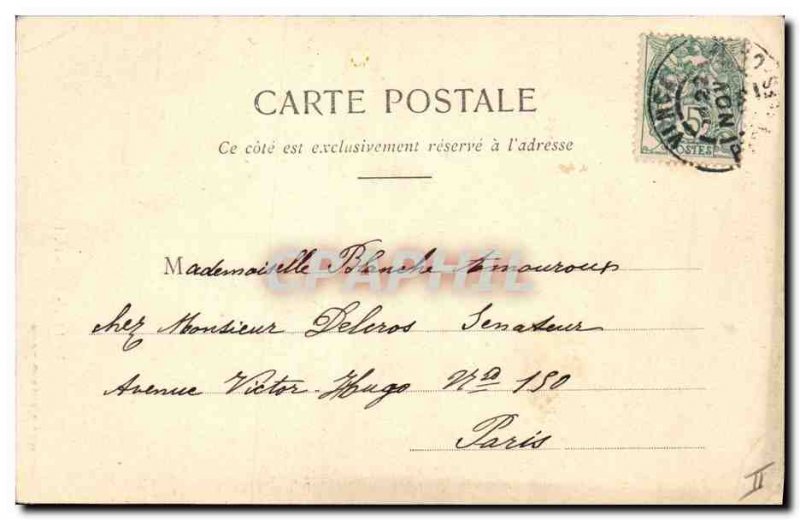 CARTE POSTALE
Ce côté est exclusivement réservé à l'adresse
5
POSTES
22
NOV
CPAPHIL
Mademoiselle Blanche Amouroux
chez Monsieur Delcros Senateur
Avenue Victor-Hugo No 150
Paris
II